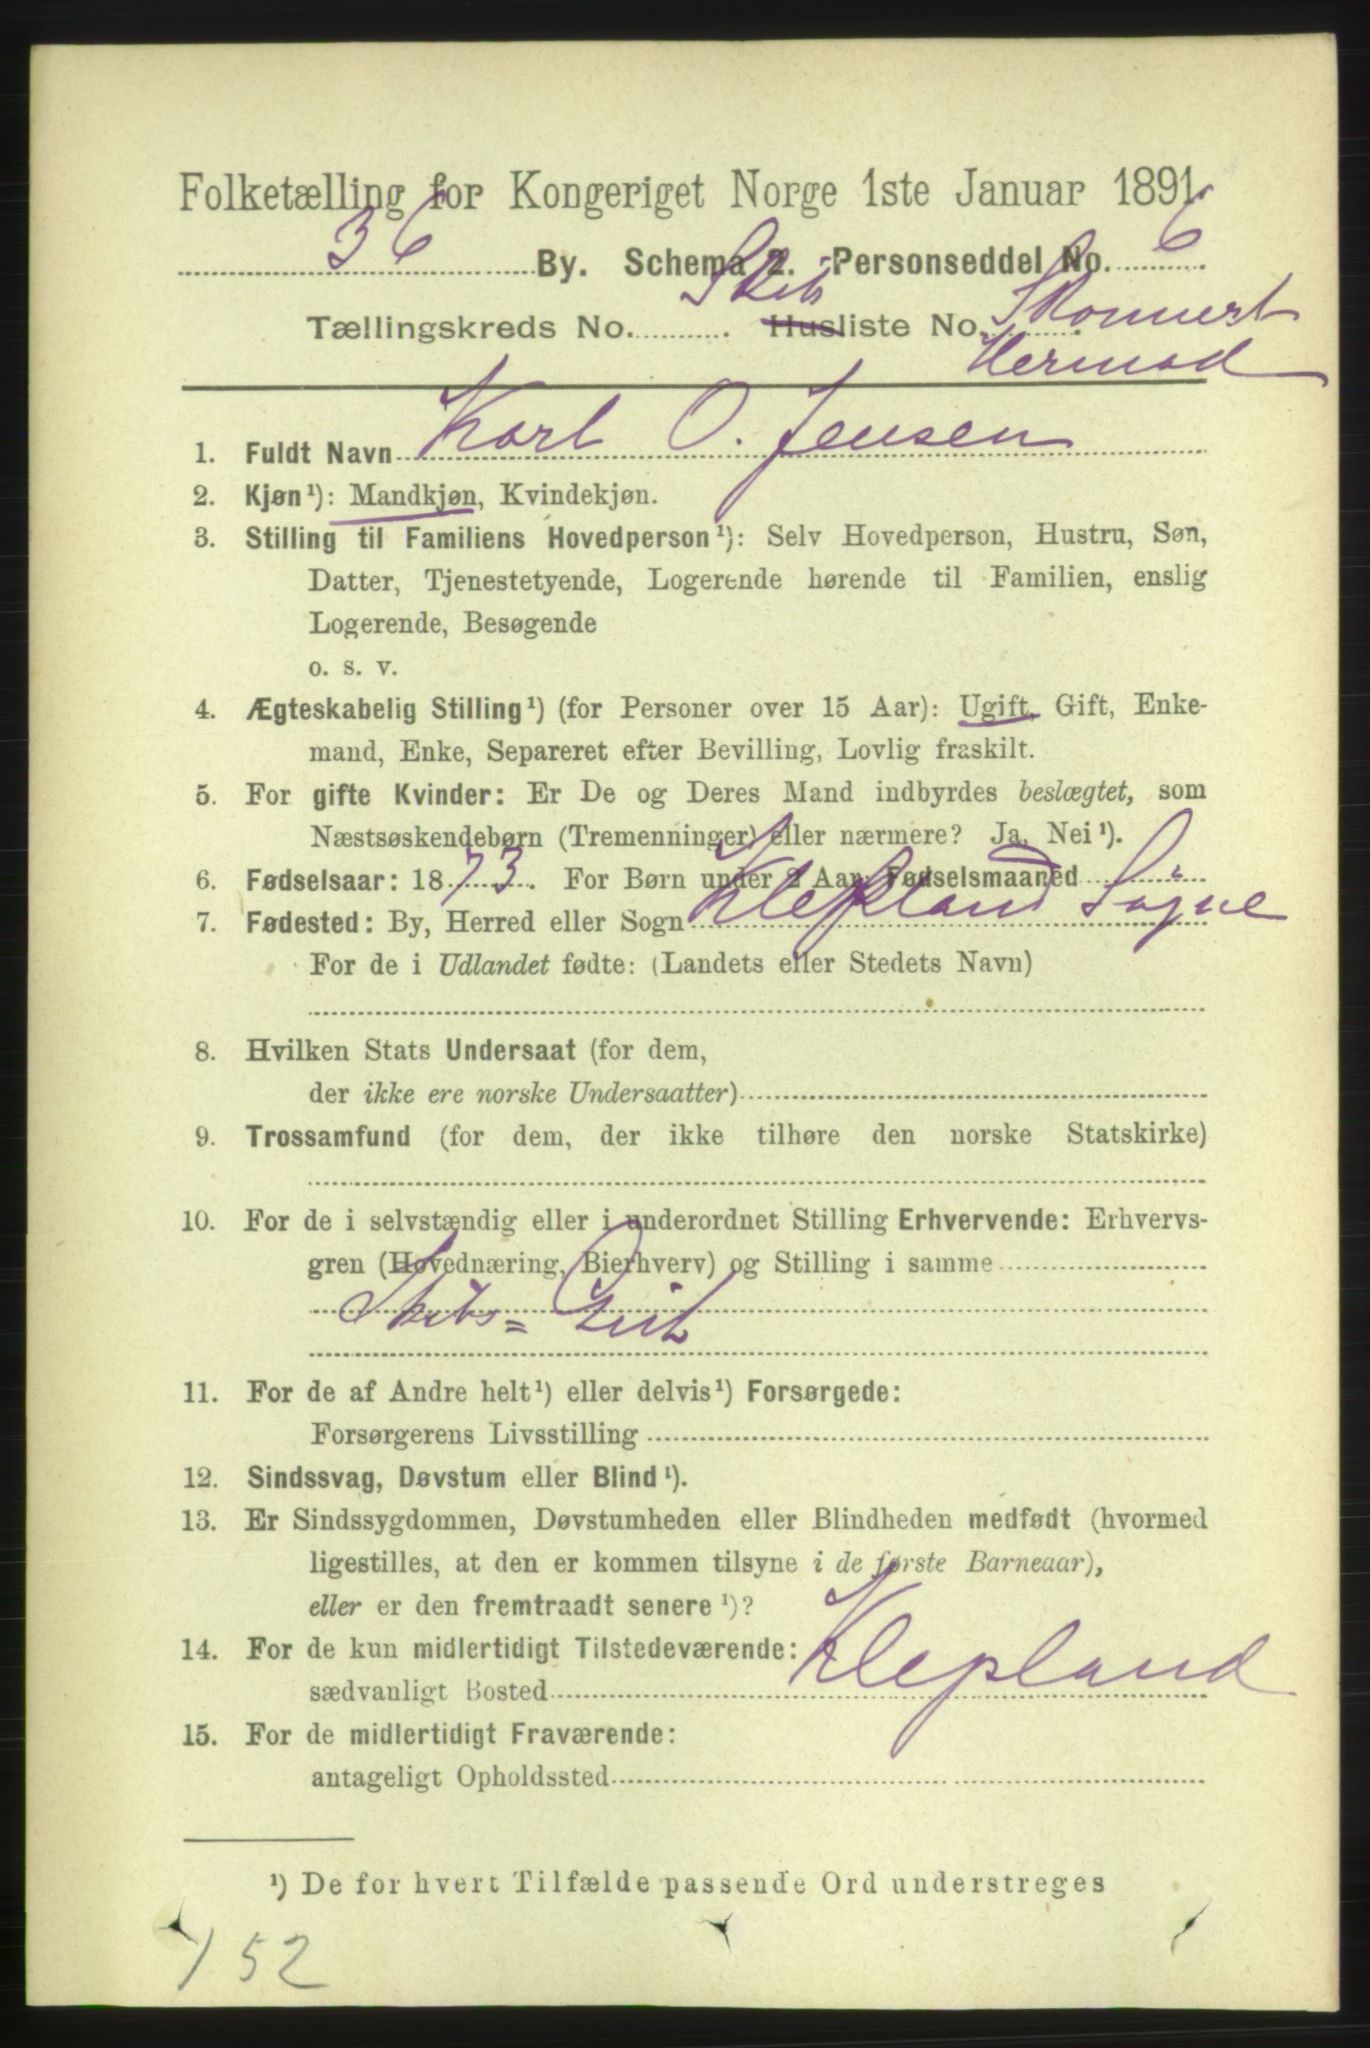 Folketælling for Kongeriget Norge 1ste Januar 1891.
36 By. Schema 2. Personseddel No. 6
Skibs
Tællingskreds No. Husliste No. Skonnert
Hermod
1. Fuldt Navn Karl O. Jensen
2. Kjøn¹): Mandkjøn, Kvindekjøn.
3. Stilling til Familiens Hovedperson¹): Selv Hovedperson, Hustru, Søn,
Datter, Tjenestetyende, Logerende hørende til Familien, enslig
Logerende, Besøgende
o. s. v.
4. Ægteskabelig Stilling¹) (for Personer over 15 Aar): Ugift, Gift, Enke-
mand, Enke, Separeret efter Bevilling, Lovlig fraskilt.
5. For gifte Kvinder: Er De og Deres Mand indbyrdes beslægtet, som
Næstsøskendebørn (Tremenninger) eller nærmere? Ja, Nei¹).
6. Fødselsaar: 1873. For Børn under 2 Aar: Fødselsmaaned
7. Fødested: By, Herred eller Sogn Klepland Søgne
For de i Udlandet fødte: (Landets eller Stedets Navn)
8. Hvilken Stats Undersaat (for dem,
der ikke ere norske Undersaatter)
9. Trossamfund (for dem, der ikke tilhøre den norske Statskirke)
10. For de i selvstændig eller i underordnet Stilling Erhvervende: Erhvervs-
gren (Hovednæring, Bierhverv) og Stilling i samme
Skibs=
11. For de af Andre helt¹) eller delvis¹) Forsørgede:
Forsørgerens Livsstilling
12. Sindssvag, Døvstum eller Blind¹).
13. Er Sindssygdommen, Døvstumheden eller Blindheden medfødt (hvormed
ligestilles, at den er kommen tilsyne i de første Barneaar),
eller er den fremtraadt senere¹)?
14. For de kun midlertidigt Tilstedeværende:
sædvanligt Bosted Klepland
15. For de midlertidigt Fraværende:
antageligt Opholdssted
¹) De for hvert Tilfælde passende Ord understreges
152